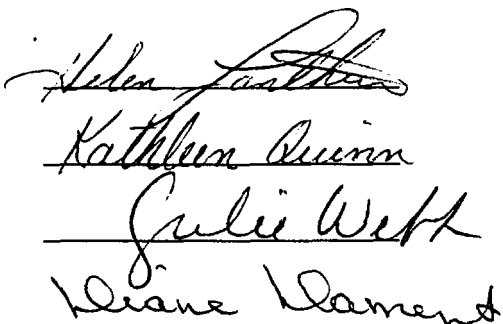 Helen
Kathleen Quinn
Julie Webb
Diane Dament